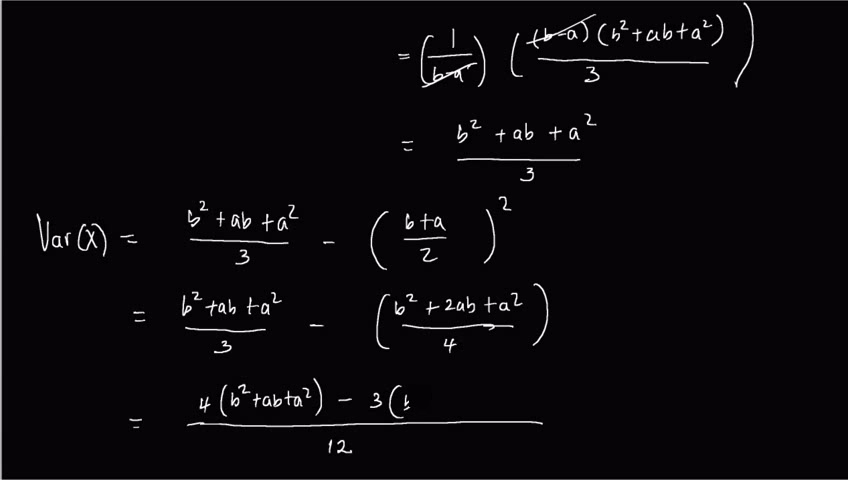 = (1/(b-a)) ((b-a)(b²+ab+a²)/3)
= (b²+ab+a²)/3
Var(X) = (b²+ab+a²)/3 - ((b+a)/2)²
= (b²+ab+a²)/3 - ((b²+2ab+a²)/4)
= (4(b²+ab+a²) - 3(b)/12